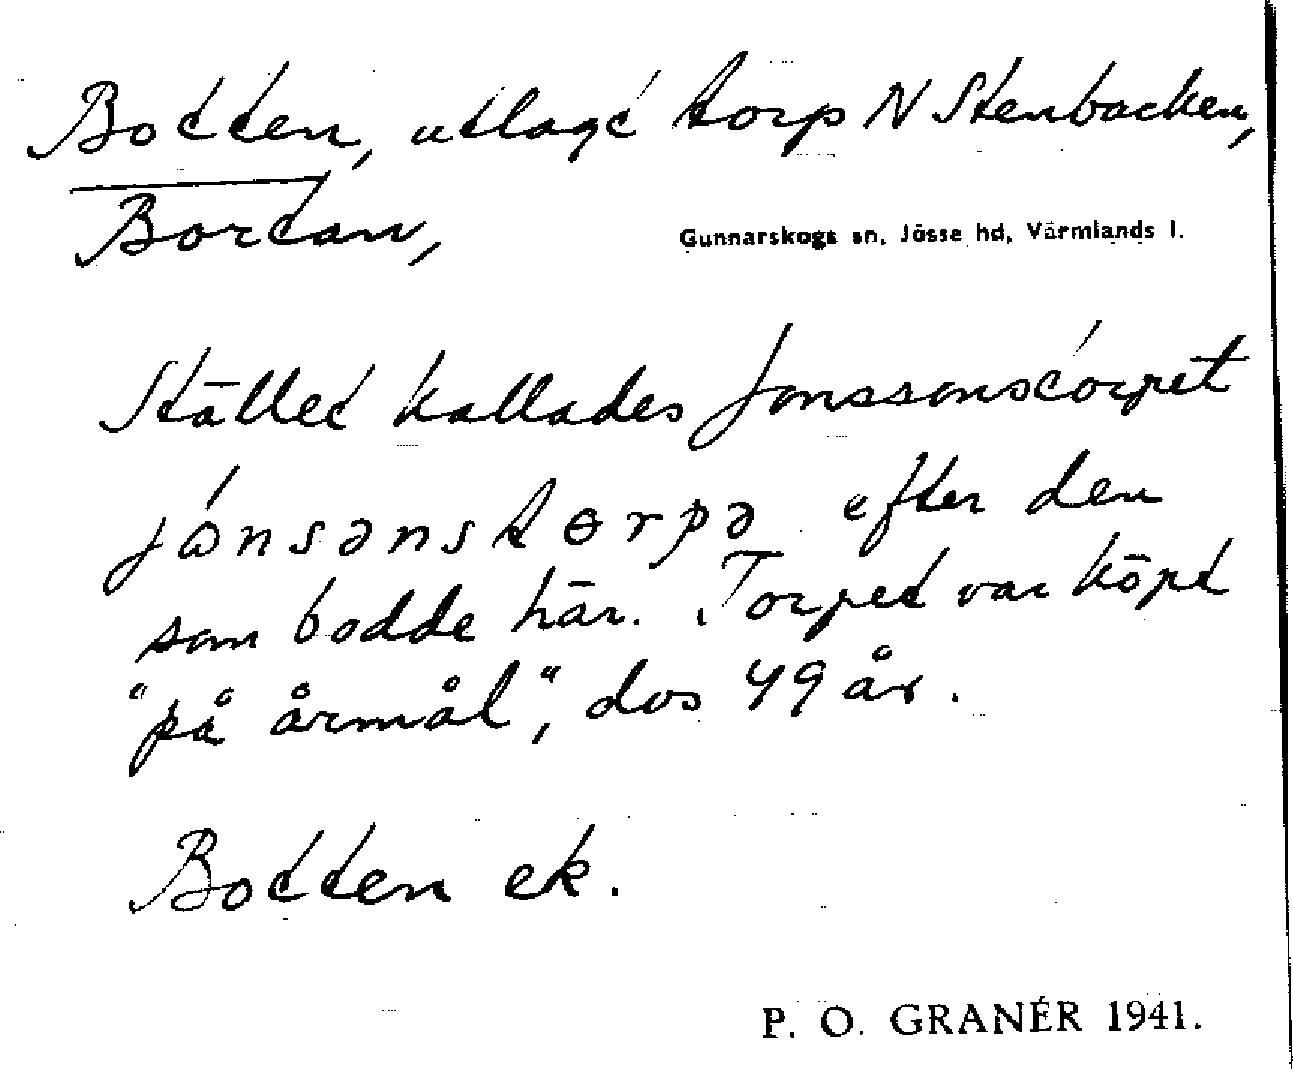 Botten, utlagt torp N Stenbacken,
Bortan,
Gunnarskogs sn, Jösse hd, Värmlands l.
Stället kallades Jonssonstorpet
jónsənstɵrpə efter den
som bodde här. Torpet var köpt
"på årmål", dvs 49 år.
Botten ek.
P. O. GRANÉR 1941.